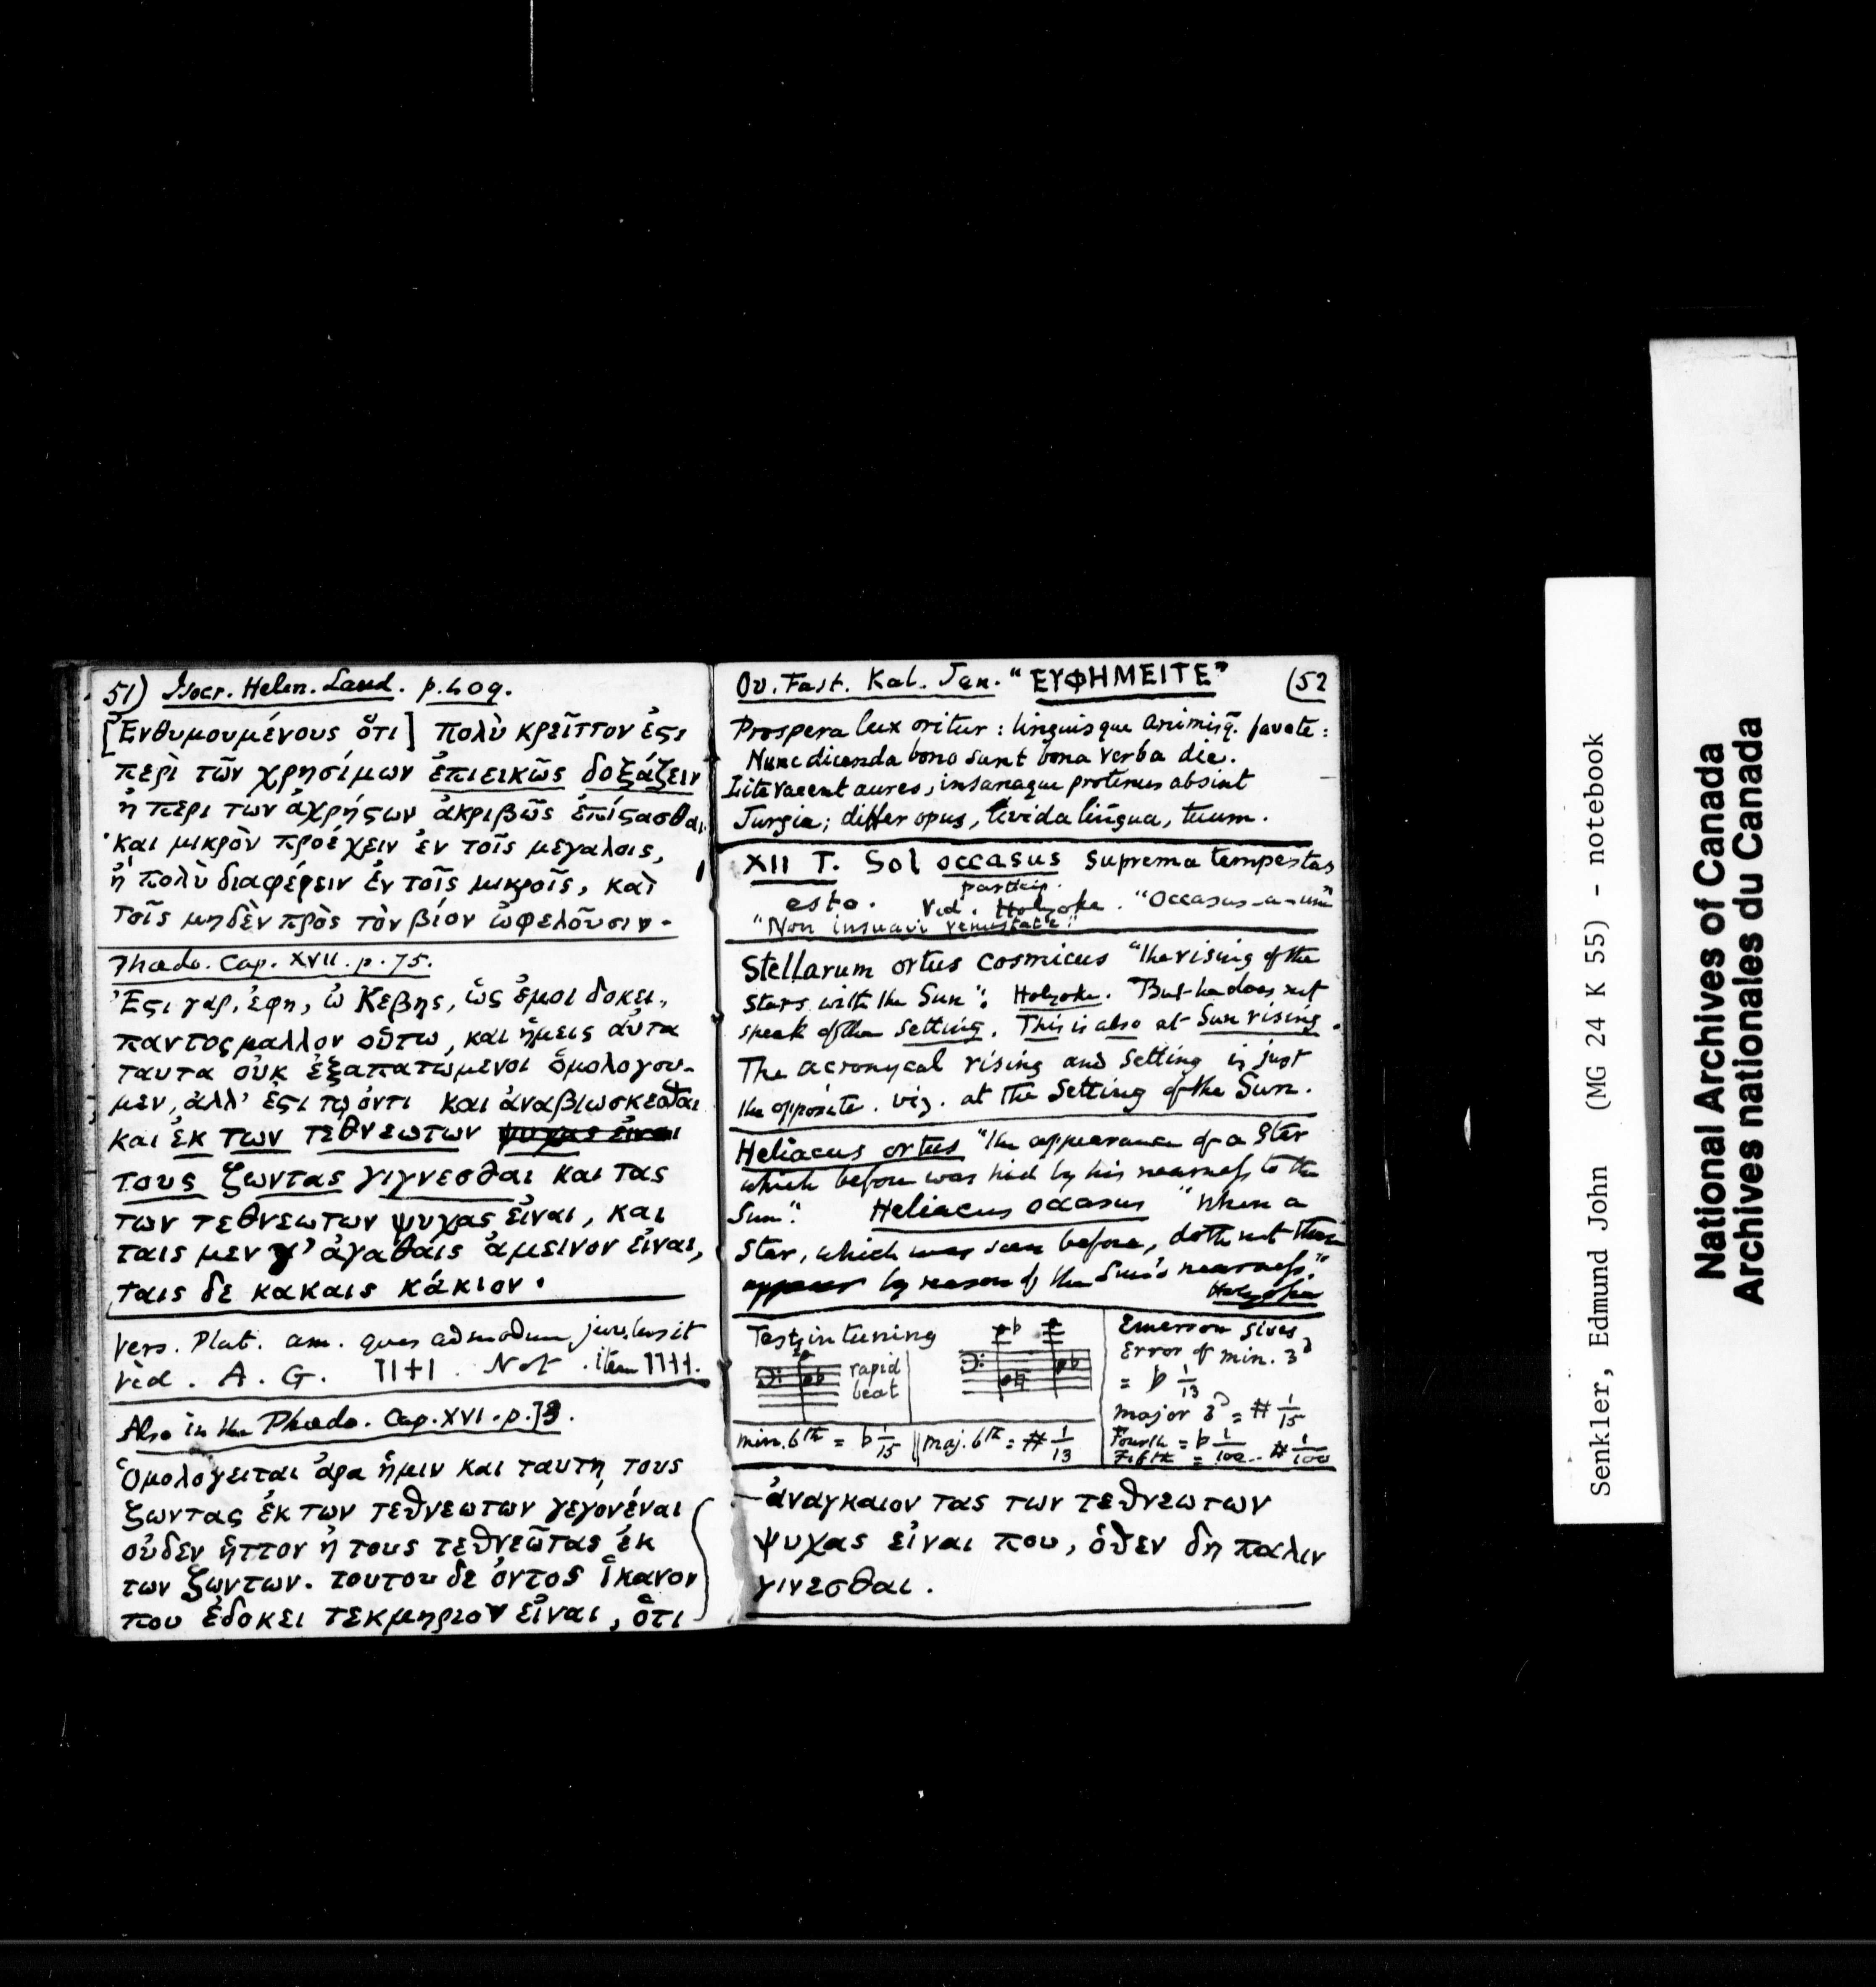 51) Isocr. Helen. Laud. p. 409.
[Ἐνθυμουμένους ὅτι] πολὺ κρεῖττον ἐςι
περὶ τῶν χρησίμων ἐπιεικῶς δοξάζειν
ἢ περι των ἀχρήςων ἀκριβῶς ἐπίςασθαι
και μικρὸν προέχειν ἐν τοῖς μεγαλοις,
ἢ πολὺ διαφέρειν ἐν τοῖς μικροῖς, καὶ
τοῖς μηδὲν πρὸς τὸν βίον ὠφελοῦσιν.
Phædo. Cap. XVII. p. 75.
Ἐςι γαρ, ἐφη, ὠ Κεβης, ὡς ἐμοι δοκει,
παντος μαλλον οὕτω, και ἡμεις αὐτα
ταυτα οὐκ ἐξαπατώμενοι ὁμολογου-
μεν, ἀλλ' ἐςι τῳ ὀντι και ἀναβιωσκεσθαι
και ἐκ των τεθνεωτων ψυχας ἐιναι
τους ζωντας γιγνεσθαι και τας
των τεθνεωτων ψυχας ἐιναι, και
ταις μεν γ' ἀγαθαις ἀμεινον ἐιναι,
ταις δε κακαις κάκιον.
Vers. Plat. am. ques admodum
Vid. A. G. Not. item
Also in the Phædo. Cap. XVI. p. 73.
Ὁμολογειται ἀρα ἡμιν και ταυτη, τους
ζωντας ἐκ των τεθνεωτων γεγονέναι
οὐδεν ἧττον ἢ τους τεθνεῶτας ἐκ
των ζωντων. τουτου δε ὀντος ἱκανον
που ἐδοκει τεκμηριον εἶναι, ὅτι
Ov. Fast. Kal. Jan. "ΕΥΦΗΜΕΙΤΕ" (52
Prospera lux oritur: linguisque animisq̄. favete:
Nunc dicenda bono sunt bona verba die.
Lite vacent aures, insanaque protenus absint
Jurgia; differ opus, livida lingua, tuum.
XII T. Sol occasus suprema tempestas
particip.
esto. Vid. Holyoke. "Occasus-a-um"
"Non insuavi venustate."
Stellarum ortus cosmicus "the rising of the
stars with the Sun". Holyoke. But he does not
speak of the setting. This is also at Sun rising.
The acronycal rising and setting is just
the opposite. viz. at the Setting of the Sun.
Heliacus ortus "the appearance of a Star
which before was hid by his nearness to the
Sun". Heliacus occasus "when a
Star, which was seen before, doth not then
appear by reason of the Sun's nearness."
Holyoke
Tests in tuning
rapid
beat
min. 6th = ♭ 1/15 || maj. 6th = # 1/13
Emerson gives
Error of min. 3d
= ♭ 1/13
major 3d = # 1/15
Fourth = ♭ 1/100 # 1/100
Fifth =
—ἀναγκαιον τας των τεθνεωτων
ψυχας εἰναι που, ὁθεν δη παλιν
γινεσθαι.
Senkler, Edmund John (MG 24 K 55) - notebook
National Archives of Canada
Archives nationales du Canada